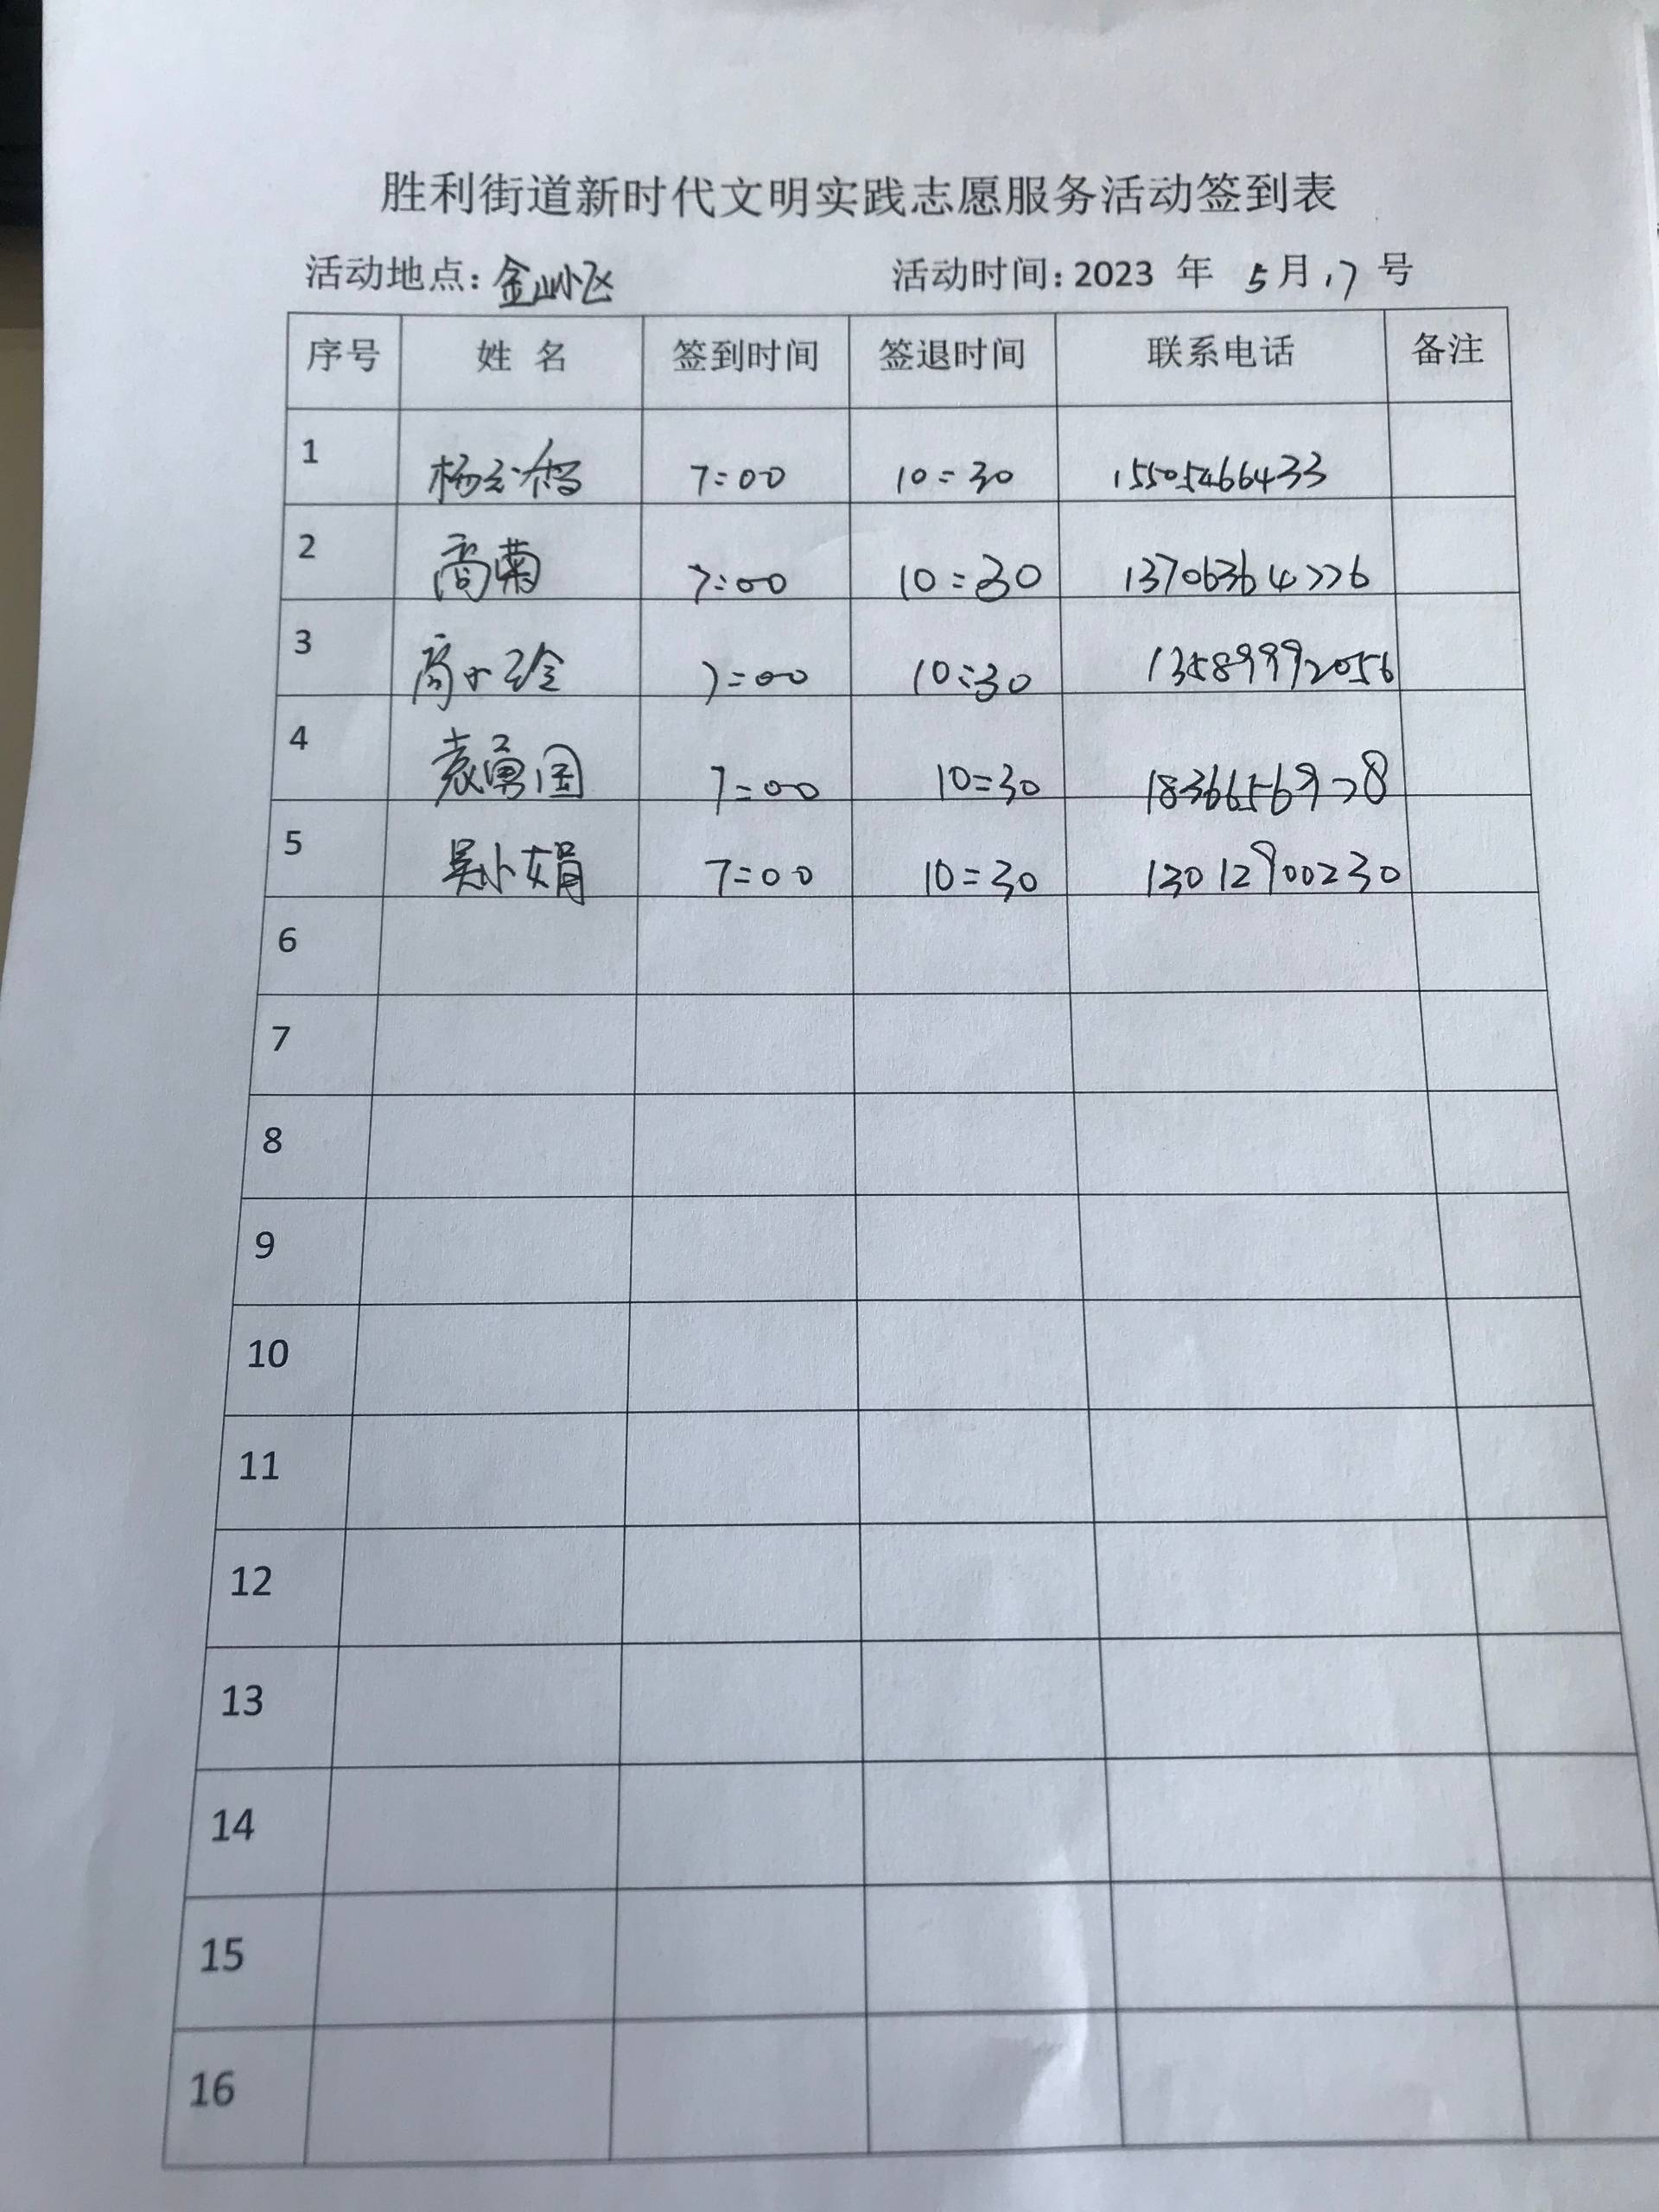 胜利街道新时代文明实践志愿服务活动签到表
活动地点：金山小区 活动时间：2023 年 5月17 号
序号 姓 名 签到时间 签退时间 联系电话 备注
1 7:00 10:30 15505466433
2 高菊 7:00 10:30 13706364776
3 7:00 10:30 13589992056
4 袁勇国 7:00 10:30 18366569778
5 吴小娟 7:00 10:30 13012900230
6
7
8
9
10
11
12
13
14
15
16